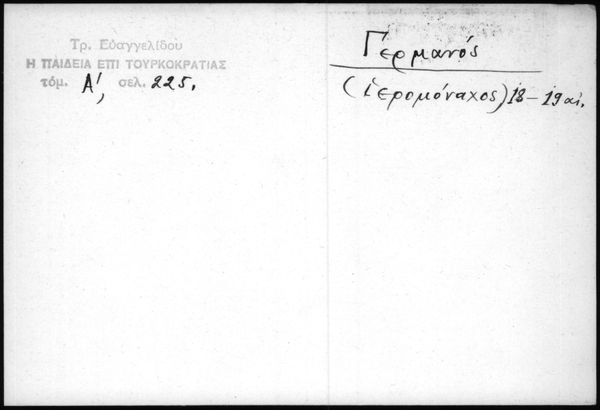 Τρ. Εὐαγγελίδου
Η ΠΑΙΔΕΙΑ ΕΠΙ ΤΟΥΡΚΟΚΡΑΤΙΑΣ
τόμ. Α', σελ. 225.
Γερμανός
(ἱερομόναχος) 18-19 αἰ.